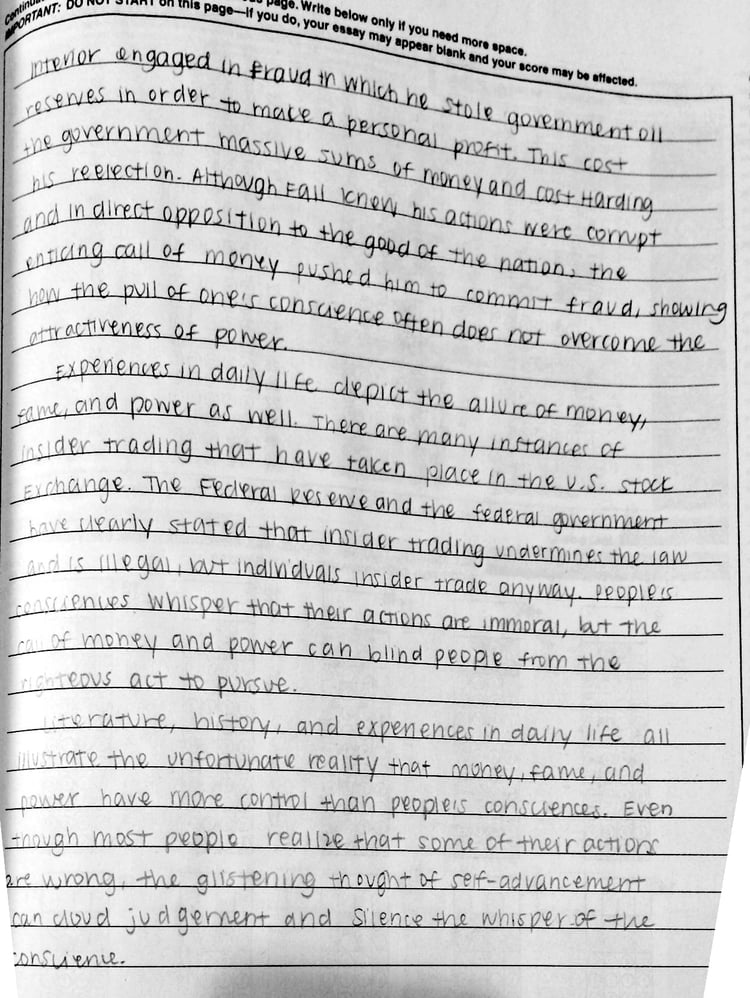 page. Write below only if you need more space.
IMPORTANT: DO NOT START on this page—if you do, your essay may appear blank and your score may be affected.
Interior engaged in fraud in which he stole government oil
reserves in order to make a personal profit. This cost
the government massive sums of money and cost Harding
his reelection. Although Fall knew his actions were corrupt
and in direct opposition to the good of the nation, the
enticing call of money pushed him to commit fraud, showing
how the pull of one's conscience often does not overcome the
attractiveness of power.
Experiences in daily life depict the allure of money,
fame, and power as well. There are many instances of
insider trading that have taken place in the U.S. Stock
Exchange. The Federal Reserve and the federal government
have clearly stated that insider trading undermines the law
and is illegal, but individuals insider trade anyway. People's
consciences whisper that their actions are immoral, but the
call of money and power can blind people from the
righteous act to pursue.
Literature, history, and experiences in daily life all
illustrate the unfortunate reality that money, fame, and
power have more control than people's consciences. Even
though most people realize that some of their actions
are wrong, the glistening thought of self-advancement
can cloud judgement and silence the whisper of the
conscience.